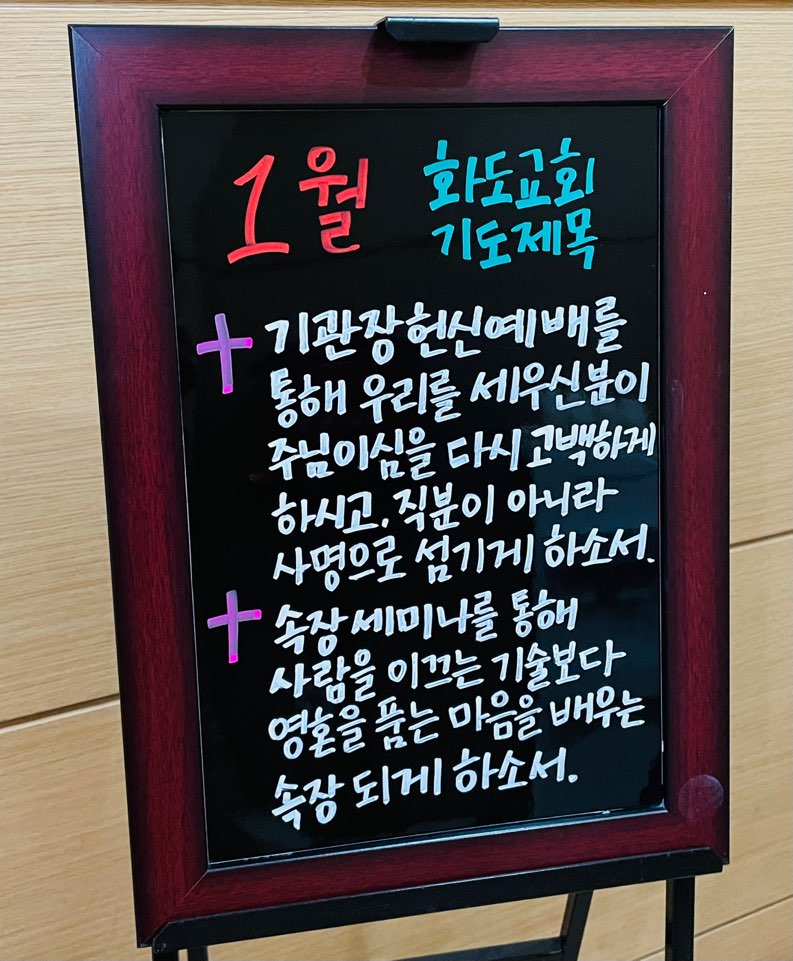 1월
화도교회
기도제목
기관장헌신예배를
통해 우리를 세우신분이
주님이심을 다시 고백하게
하시고, 직분이 아니라
사명으로 섬기게 하소서.
속장 세미나를 통해
사람을 이끄는 기술보다
영혼을 품는 마음을 배우는
속장 되게 하소서.